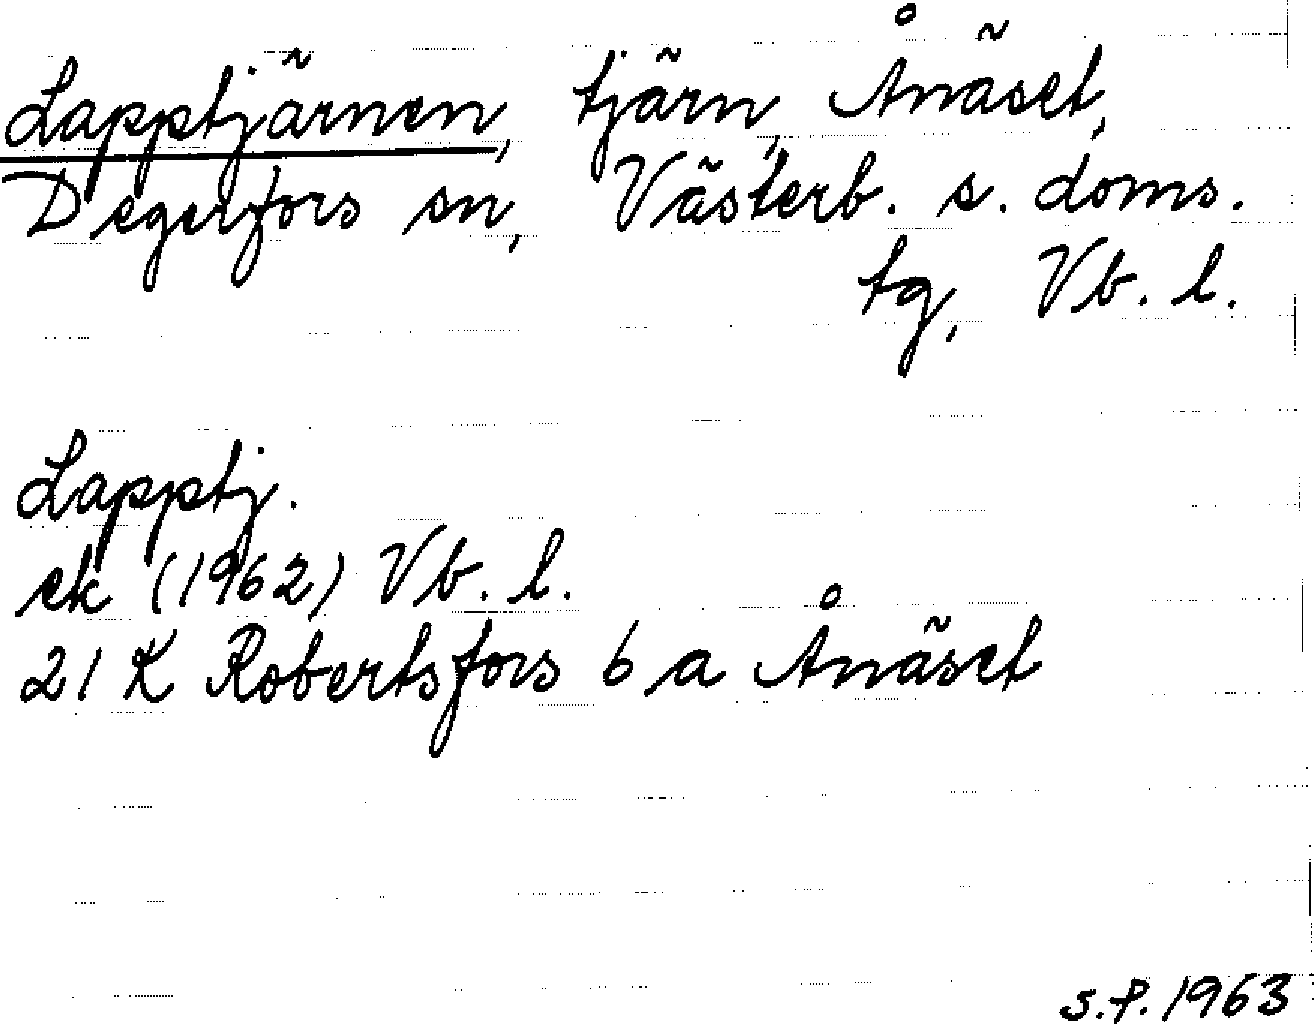 Lapptjärnen, tjärn, Ånäset,
Degerfors sn, Västerb. s. doms.
tg, Vb. l.
Lapptj.
ek (1962) Vb. l.
21 K Robertsfors 6 a Ånäset
S.P. 1963